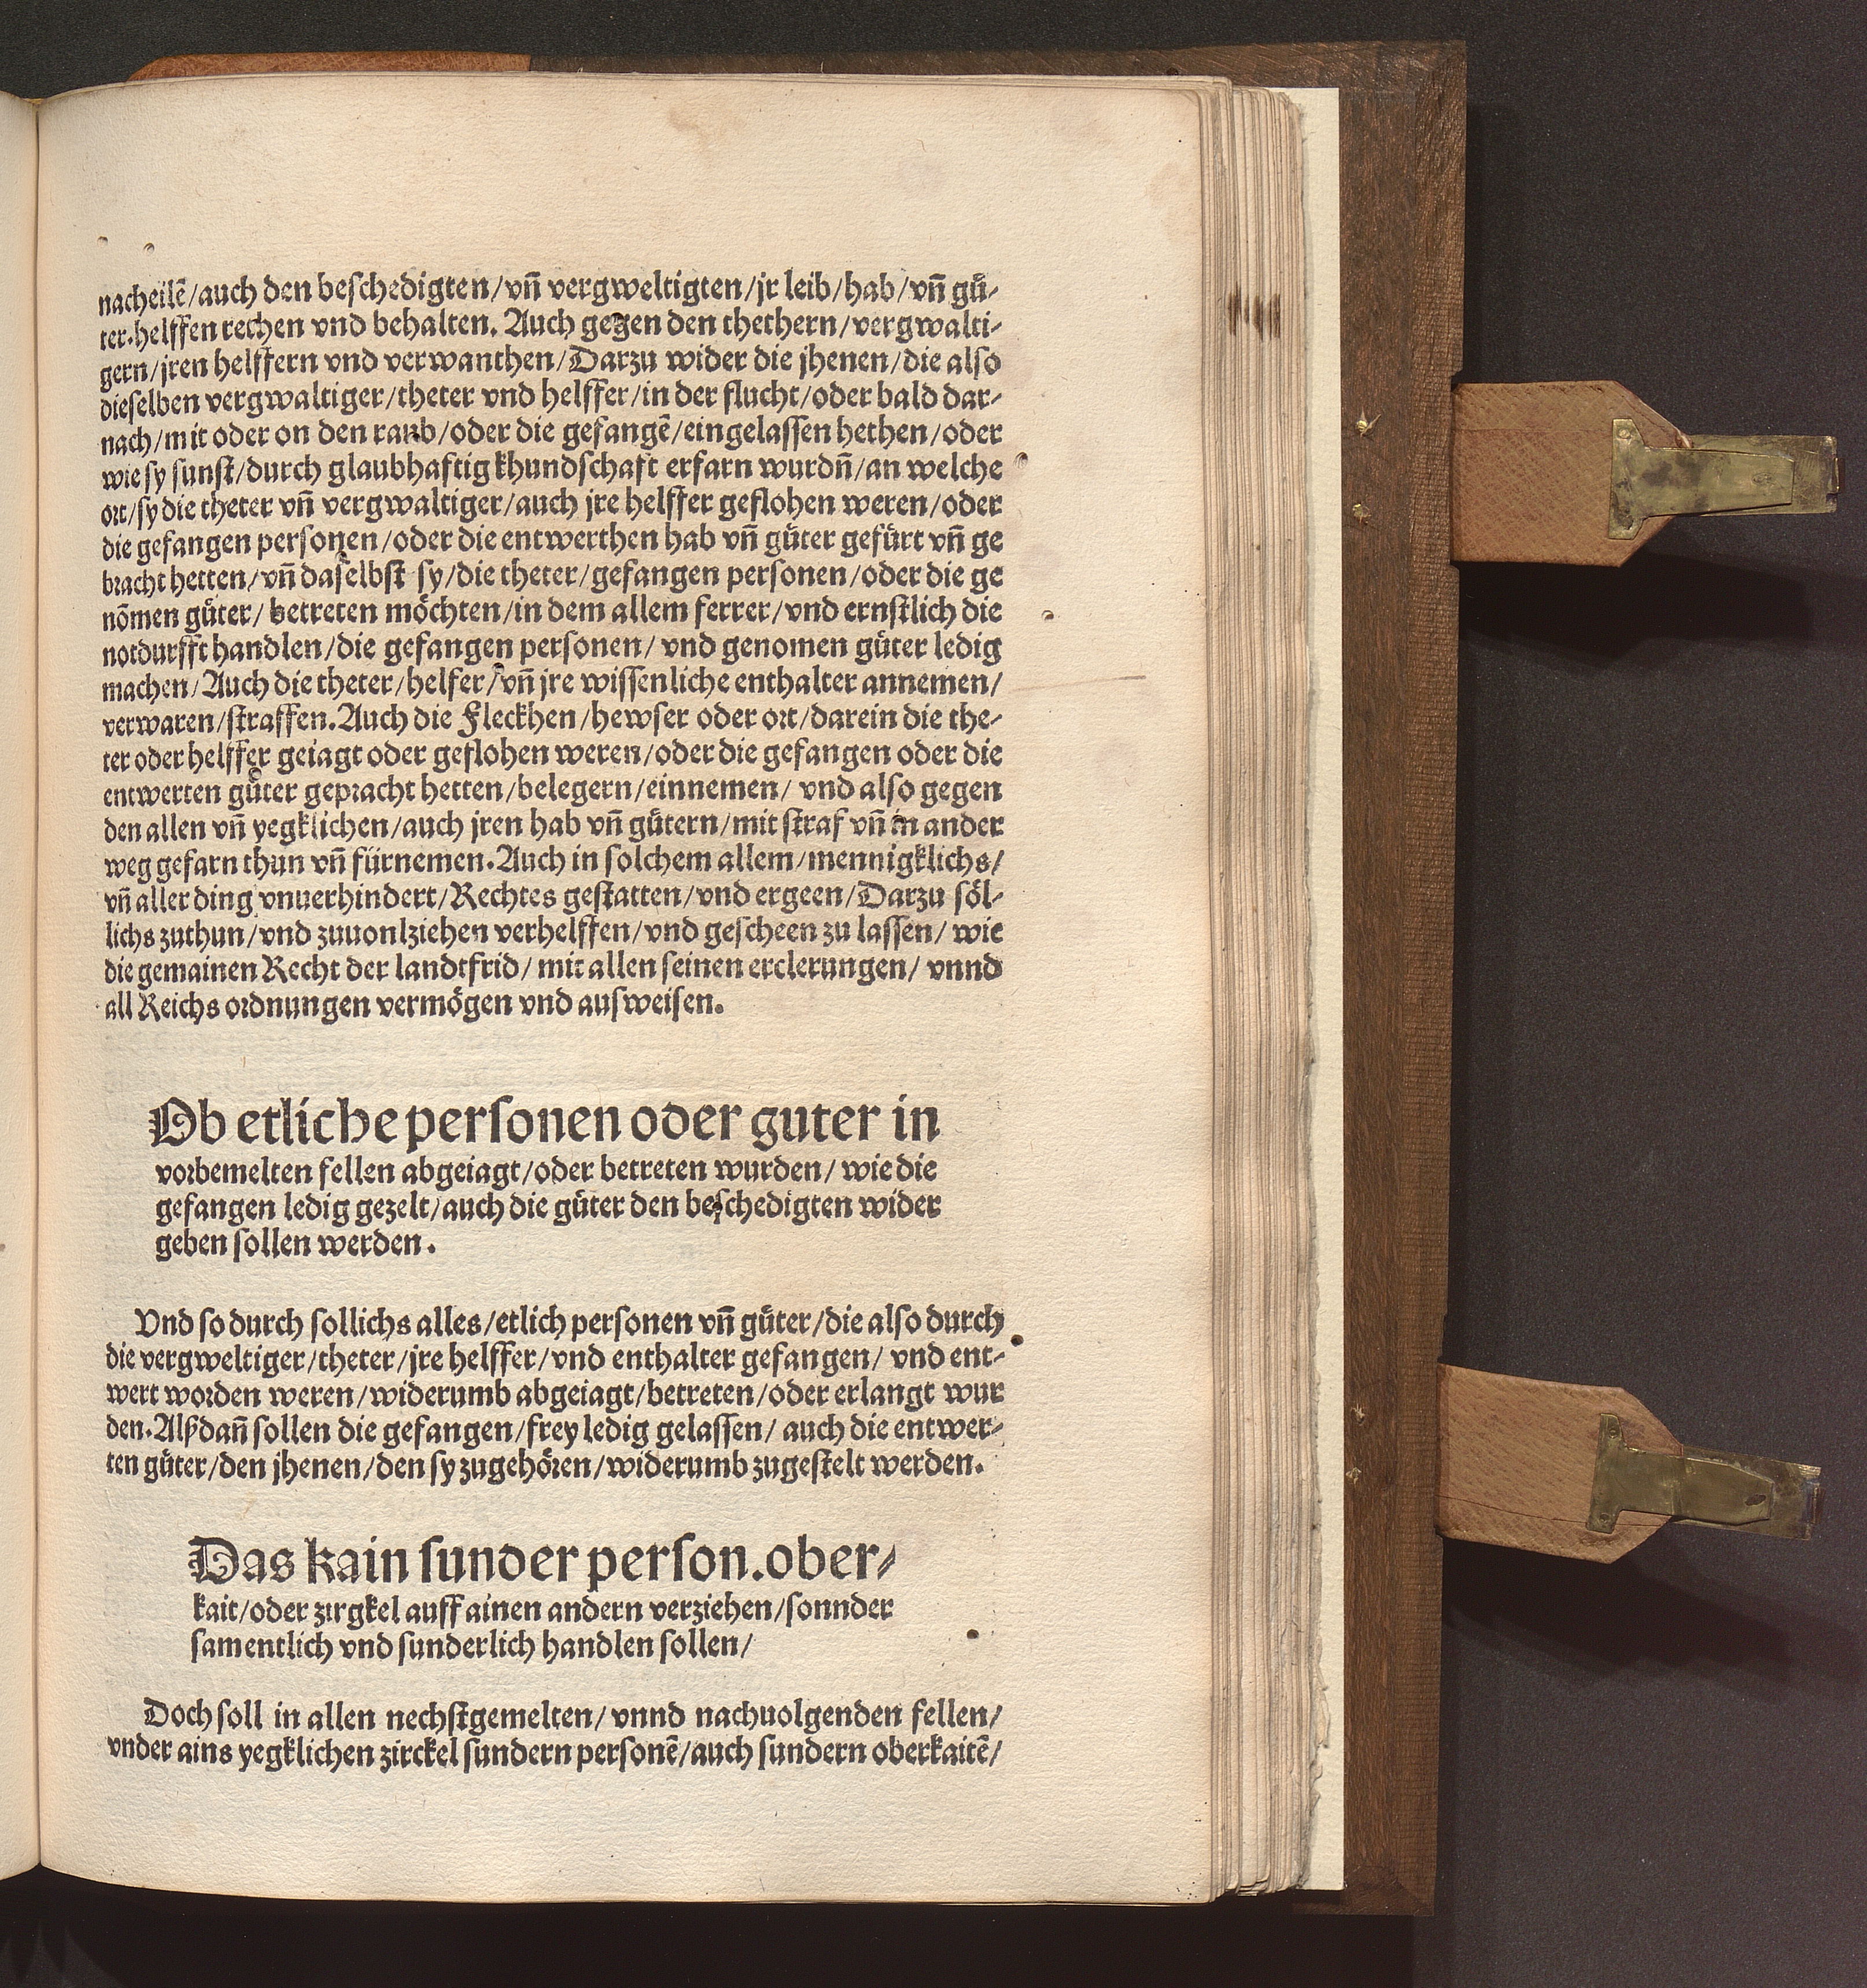 nacheilẽ/auch den beſchedigten/vñ vergweltigten/jr leib/hab/vñ guͤ-
ter.helffen rechen vnd behalten. Auch gegen den thethern/vergwalti-
gern/jren helffern vnd verwanthen/Darzu wider die jhenen/die alſo
dieſelben vergwaltiger/theter vnd helffer/in der flucht/oder bald dar-
nach/mit oder on den raub/oder die gefangẽ/eingelaſſen hethen/oder
wie ſy ſunſt/durch glaubhaftig khundſchaft erfarn wurdñ/an welche
ort/ſy die theter vñ vergwaltiger/auch jre helffer geflohen weren/oder
die gefangen perſonen/oder die entwerthen hab vñ guͤter gefuͤrt vñ ge
bracht hetten/vñ daſelbſt ſy/die theter/gefangen perſonen/oder die ge
nõmen guͤter/betreten moͤchten/in dem allem ferrer/vnd ernſtlich die
notdurfft handlen/die gefangen perſonen/vnd genomen guͤter ledig
machen/Auch die theter/helfer/vñ jre wiſſenliche enthalter annemen/
verwaren/ſtraffen.Auch die Fleckhen/hewſer oder ort/darein die the-
ter oder helffer geiagt oder geflohen weren/oder die gefangen oder die
entwerten guͤter gepracht hetten/belegern/einnemen/vnd alſo gegen
den allen vñ yegklichen/auch jren hab vñ guͤtern/mit ſtraf vñ in ander
weg gefarn thun vñ fuͤrnemen.Auch in ſolchem allem/mennigklichs/
vñ aller ding vnuerhindert/Rechtes geſtatten/vnd ergeen/Darzu ſoͤl-
lichs zuthun/vnd zuuonlziehen verhelffen/vnd geſcheen zu laſſen/wie
die gemainen Recht der landtfrid/mit allen ſeinen erclerungen/vnnd
all Reichs ordnungen vermoͤgen vnd auſweiſen.
Ob etliche perſonen oder guter in
vorbemelten fellen abgeiagt/oder betreten wurden/wie die
gefangen ledig gezelt/auch die guͤter den beſchedigten wider
geben ſollen werden.
Vnd ſo durch ſollichs alles/etlich perſonen vñ guͤter/die alſo durch
die vergweltiger/theter/jre helffer/vnd enthalter gefangen/vnd ent-
wert worden weren/widerumb abgeiagt/betreten/oder erlangt wur
den.Alßdañ ſollen die gefangen/frey ledig gelaſſen/auch die entwer-
ten guͤter/den jhenen/den ſy zugehoͤren/widerumb zugeſtelt werden.
Das kain ſunder perſon.ober-
kait/oder zirgkel auff ainen andern verziehen/ſonnder
ſamentlich vnd ſunderlich handlen ſollen/
Doch ſoll in allen nechſtgemelten/vnnd nachuolgenden fellen/
vnder ains yegklichen zirckel ſundern perſonẽ/auch ſundern oberkaitẽ/